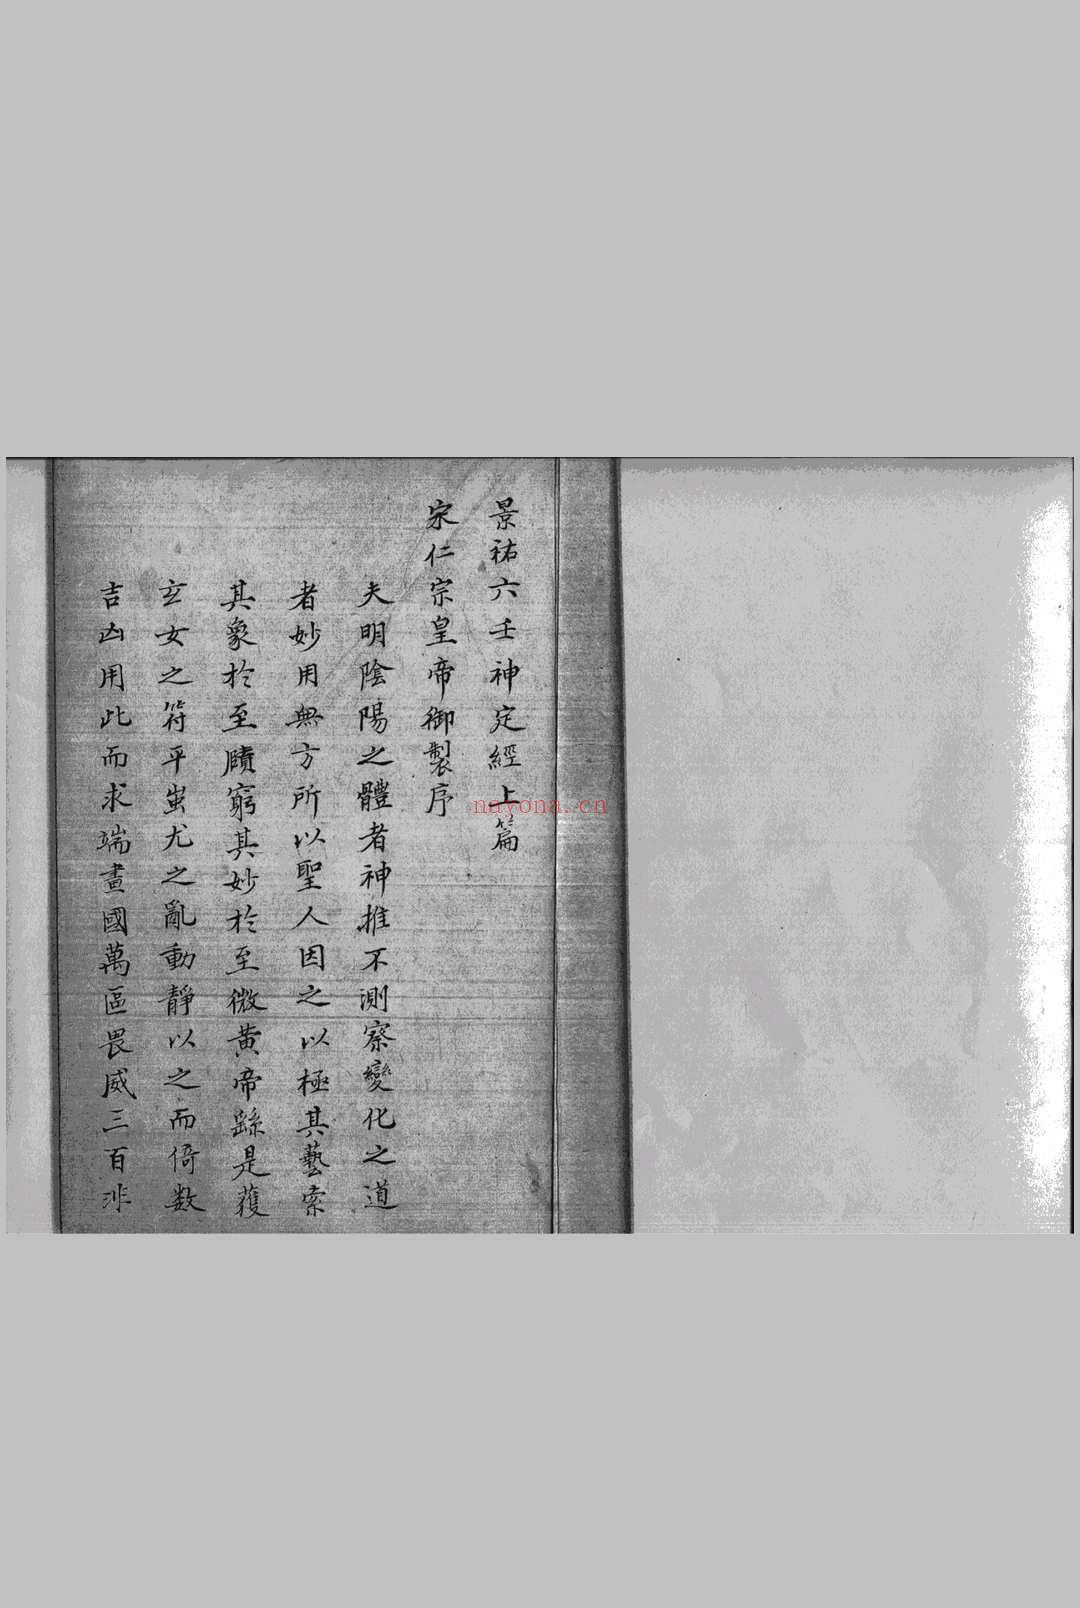 景祐六壬神定經上篇
宋仁宗皇帝御製序
夫明陰陽之體者神推不測察變化之道
者妙用無方所以聖人因之以極其藝索
其象於至賾窮其妙於至微黃帝繇是獲
玄女之符平蚩尤之亂動靜以之而倚数
吉凶用此而求端畫國萬區畏威三百非
nayona.cn